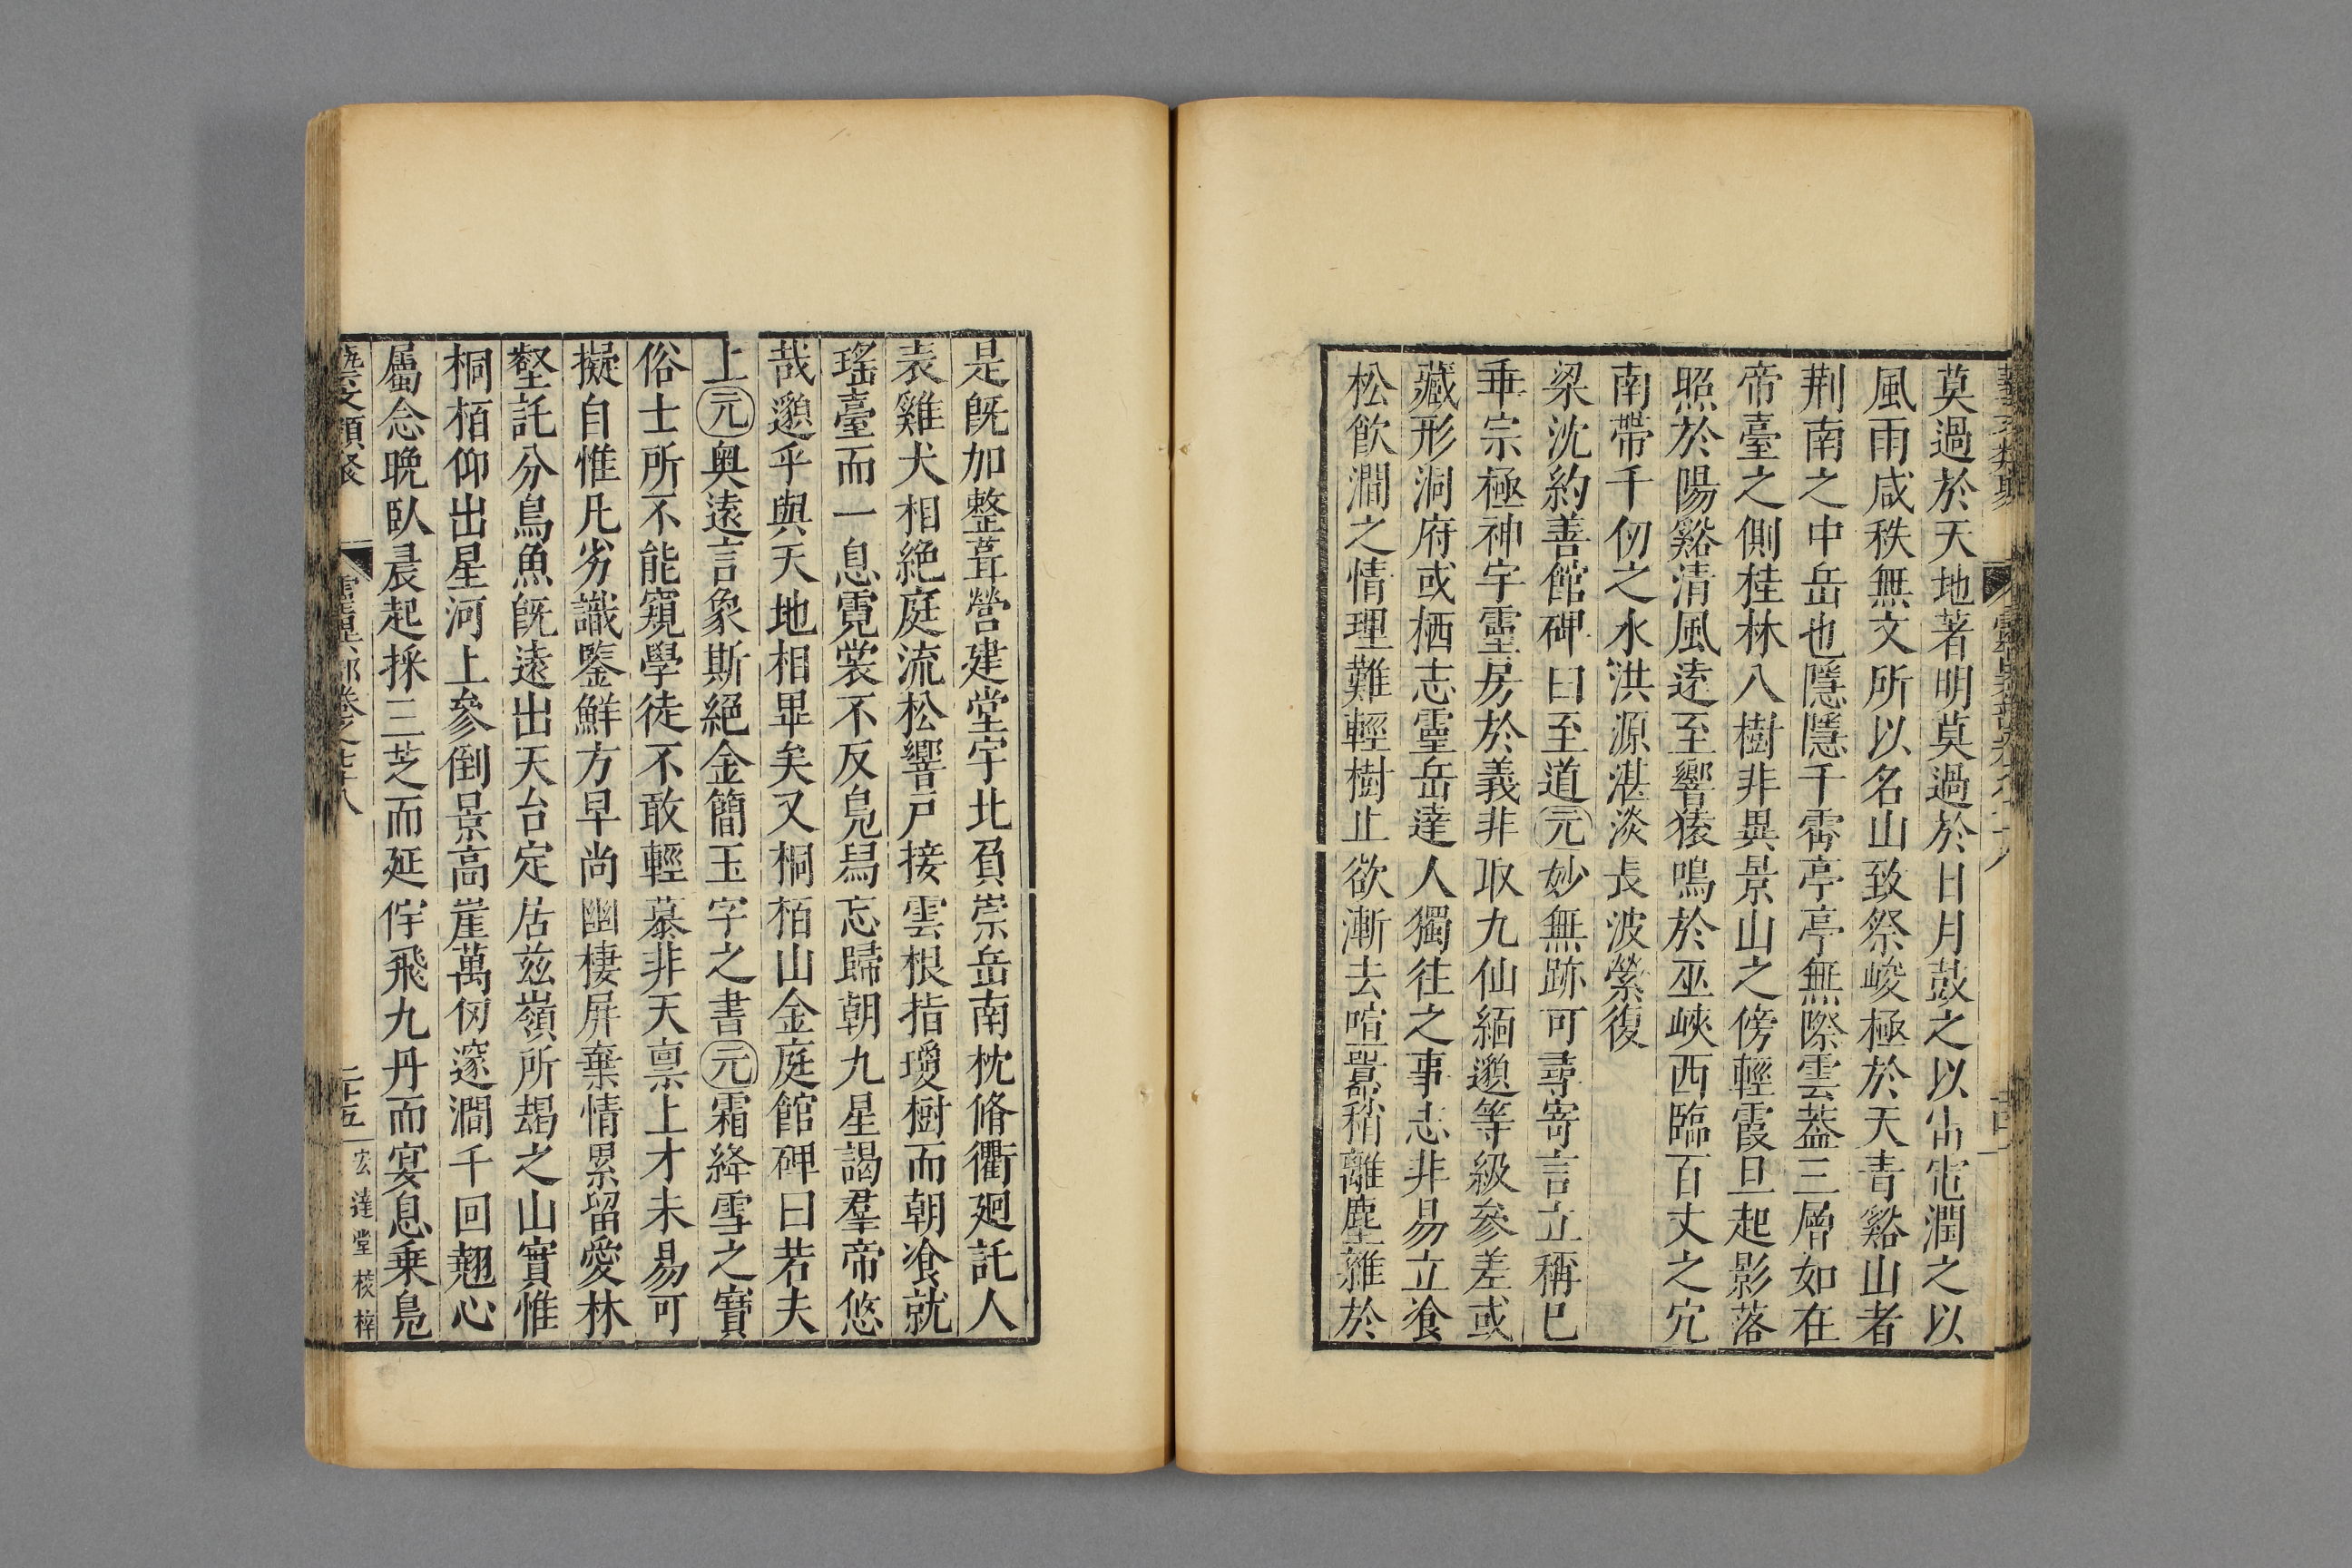 莫過於天地著明莫過於日月鼓之以雷電潤之以
風雨咸秩無文所以名山致祭峻極於天青谿山者
荆南之中岳也隱隱千霱亭亭無際雲葢三層如在
帝臺之側桂林八樹非異景山之傍輕霞旦起影落
照於陽谿清風遠至響猿鳴於巫峽西臨百丈之穴
南帶千仞之水洪源湛淡長波縈復
梁沈約善館碑曰至道元妙無跡可尋寄言立稱已
乖宗極神宇靈房於義非取九仙緬邈等級參差或
藏形洞府或栖志靈岳達人獨往之事志非易立飡
松飲澗之情理難輕樹止欲漸去喧囂稍離塵雜於
是旣加整葺營建堂宇北負崇岳南枕脩衢廻託人
表雞犬相絶庭流松響戸接雲根指璦樹而朝飡就
瑤臺而一息霓裳不反鳧舄忘歸朝九星謁羣帝悠
哉邈乎與天地相畢矣又桐栢山金庭館碑曰若夫
上元奥遠言象斯絕金簡玉字之書元霜絳雪之寶
俗士所不能窺學徒不敢輕慕非天禀上才未易可
擬自惟凡劣識鑒鮮方早尚幽棲屏棄情累留愛林
壑託分鳥魚旣遠出天台定居兹嶺所朅之山實惟
桐栢仰出星河上參倒景高崖萬仞邃澗千回翹心
屬念晩臥晨起採三芝而延佇飛九丹而宴息乗鳧
藝文類聚 靈異部卷之七十八 二十五 宏達堂校梓